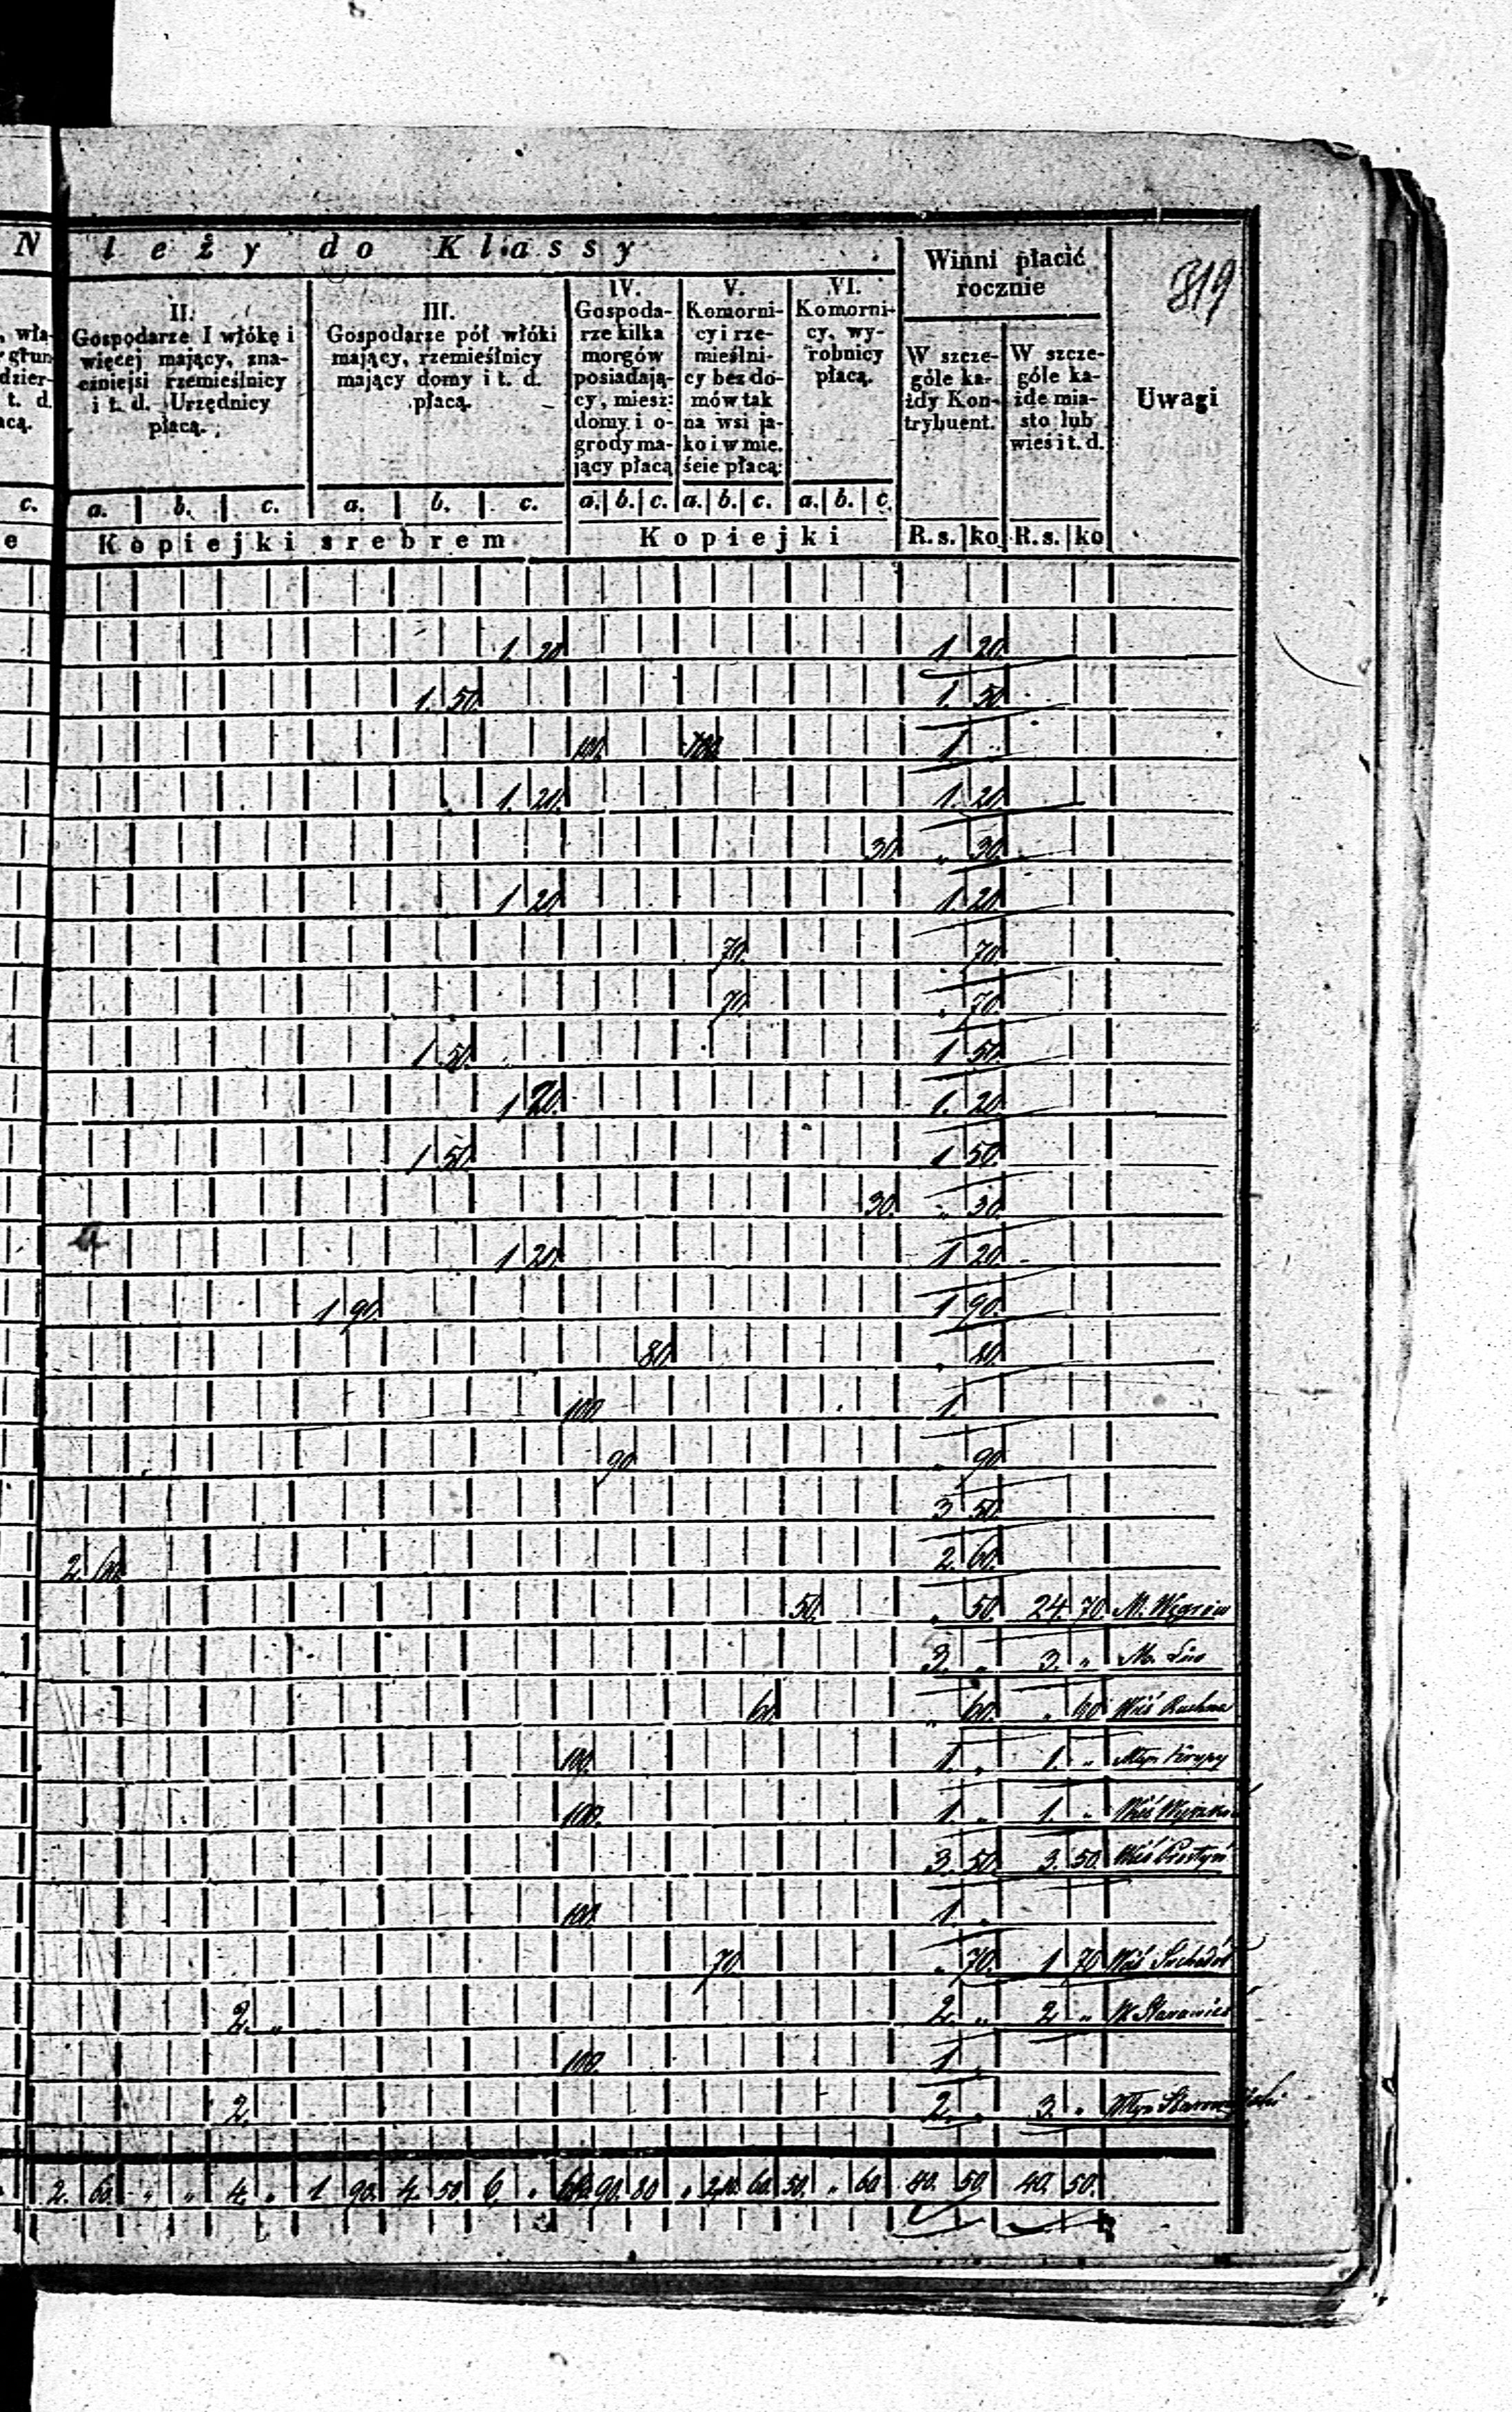 N leży do Klassy
Winni płacić rocznie
Uwagi
819
, wła-
głun
dzier-
t. d.
acą.
II.
Gospodarze I włókę i
więcej mający, zna-
czniejsi rzemieślnicy
i t. d. Urzędnicy
płacą.
III.
Gospodarze pół włóki
mający, rzemieślnicy
mający domy i t. d.
płacą.
IV.
Gospoda-
rze kilka
morgów
posiadają-
cy, miesz:
domy i o-
grody ma-
jący płacą
V.
Komorni-
cy i rze-
mieślni-
cy bez do-
mów tak
na wsi ja-
ko i w mie.
ście płacą:
VI.
Komorni-
cy, wy-
robnicy
płacą.
W szcze-
góle ka-
żdy Kon-
trybuent.
W szcze-
góle ka-
żde mia-
sto lub
wieś i t. d.
c. a. b. c. a. b. c. a. b. c. a. b. c. a. b. c.
e Kopiejki srebrem Kopiejki R. s. ko R. s. ko
1. 20 1. 20
1. 50. 1. 50
100. 1 „
1. 20. 1. 20
30 „ 30
1 20 1 20
70. 70.
70. „ 70.
1 50. 1 50.
1 20. 1. 20
1 50. 1 50.
30. „ 30.
1 20. 1 20.
1 90. 1 90.
80. „ 80.
100. 1.
90 „ 90
3 50.
2. 60. 2. 60.
50. „ 50. 24. 70. M. Węgrów
3. „ 3. „ M. Liw
60. „ 60. „ 60 Wieś Ruchna
100. 1. „ 1. „ Młyn Krypy
100. 1. „ 1. „ Wieś
3. 50. 3. 50. Wieś Prostyń
100. 1. „
70 „ 70. 1 70 Wieś
2. „ 2. „ 2 „ W. Starawieś
100. 1 „
2. 2. „ 3. „ Młyn
2. 60. „ „ 4. „ 1 90. 4. 50 6. „ 90. 80 „ 2,10. 60. 50. „ 60 40. 50 40. 50.